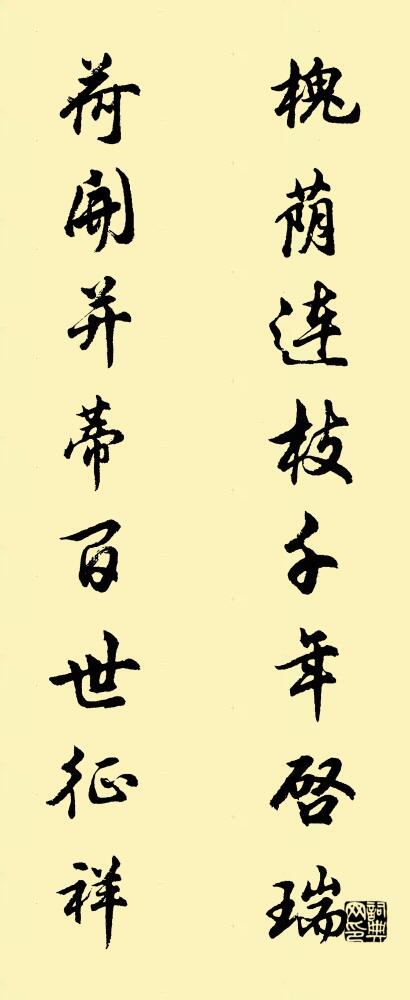 槐荫连枝千年启瑞
荷开并蒂百世征祥
词典网印